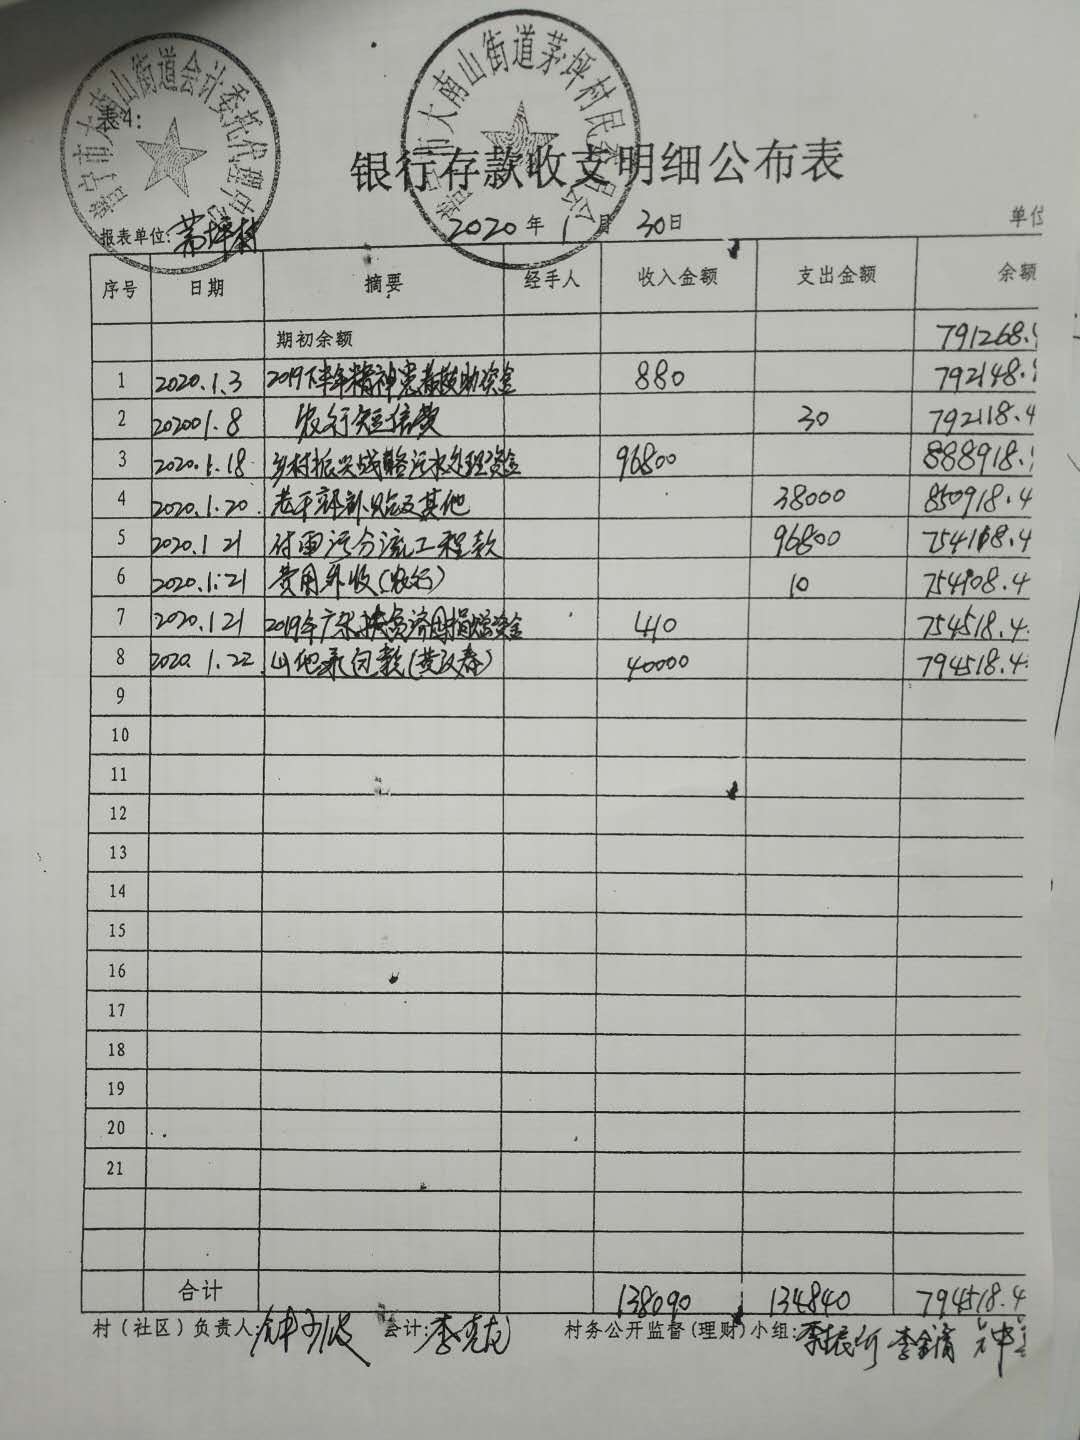 普宁市大南山街道会计委托代理中心
普宁市大南山街道茅坪村民委员会
表4:
银行存款收支明细公布表
报表单位: 茅坪村 2020年1月30日 单位
序号 日期 摘要 经手人 收入金额 支出金额 余额
期初余额 791268.
1 2020.1.3 2019下半年精神患者救助资金 880 792148.
2 202001.8 农行短信费 30 792118.4
3 2020.1.18 乡村振兴战略污水处理资金 96800 888918.
4 2020.1.20 老干部补贴及其他 38000 850918.4
5 2020.1 21 付雨污分流工程款 96800 754118.4
6 2020.1.21 费用外收(农行) 10 754108.4
7 2020.1 21 2019年广东扶贫济困捐赠资金 410 754518.4
8 2020.1.22 山地承包款(黄汉春) 40000 794518.4
9
10
11
12
13
14
15
16
17
18
19
20
21
合计 138090 134840 794518.4
村(社区)负责人: 会计: 村务公开监督(理财)小组: 李振 李金